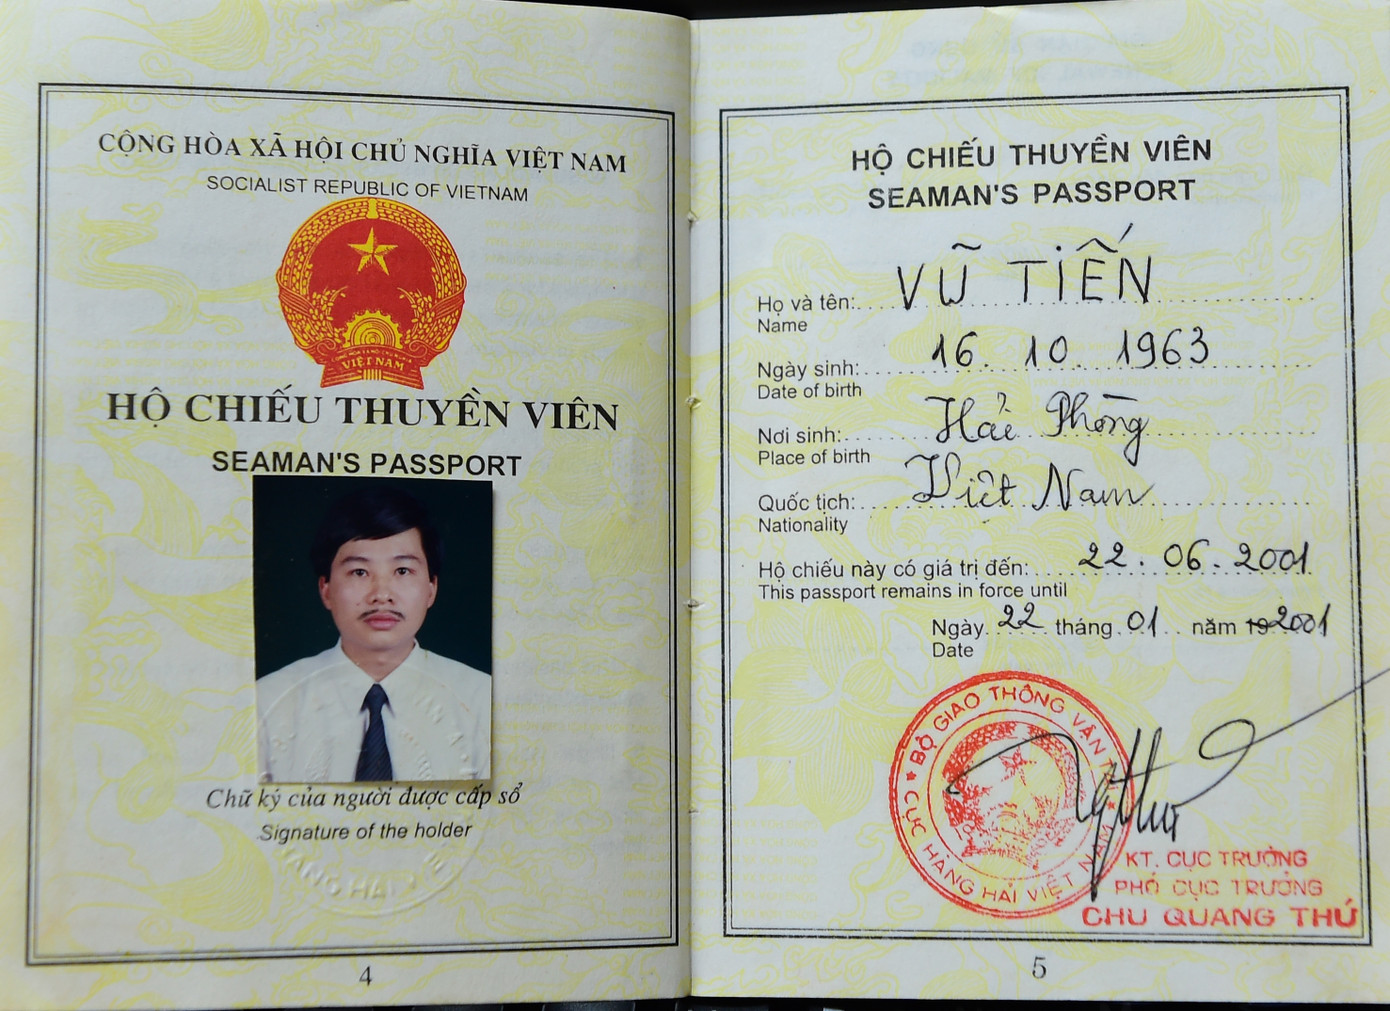 CỘNG HÒA XÃ HỘI CHỦ NGHĨA VIỆT NAM
SOCIALIST REPUBLIC OF VIETNAM
VIỆT NAM
HỘ CHIẾU THUYỀN VIÊN
SEAMAN'S PASSPORT
Chữ ký của người được cấp sổ
Signature of the holder
HÀNG HẢI VIỆT
4
HỘ CHIẾU THUYỀN VIÊN
SEAMAN'S PASSPORT
Họ và tên: VŨ TIẾN
Name
Ngày sinh: 16. 10. 1963
Date of birth
Nơi sinh: Hải Phòng
Place of birth
Quốc tịch: Việt Nam
Nationality
Hộ chiếu này có giá trị đến: 22.06.2001
This passport remains in force until
Ngày 22 tháng 01 năm 19 2001
Date
BỘ GIAO THÔNG VẬN TẢI
CỤC HÀNG HẢI VIỆT NAM
KT. CỤC TRƯỞNG
PHÓ CỤC TRƯỞNG
CHU QUANG THỨ
5